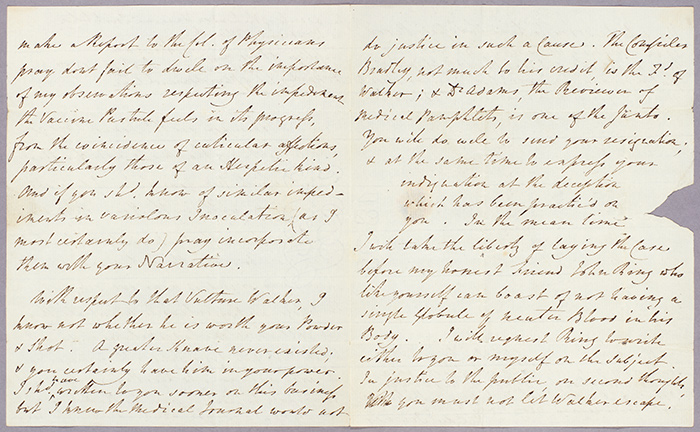 make a Report to the Col. of Physicians
pray dont fail to dwell on the importance
of my observations respecting the impediment
the Vaccine Pustule feels in its progress,
from the coincidence of cuticular affections,
particularly those of an Herpetic kind.
And if you shd. know of similar imped-
iments in Variolous Inoculation (as I
most certainly do) pray incorporate
them with your Narrative.
With respect to that Vulture Walker, I
know not whether he is worth your Powder
& Shot. A greater Knave never existed,
& you certainly have him in your power.
I shd. have written to you sooner on this business
but I knew the Medical Journal would not
do justice in such a Cause. The Compiler
Bradley, not much to his credit is the Fd. of
Walker; & Dr Adams, the Reviewer of
Medical Pamphlets, is one of the Junto.
You will do well to send your resignation,
& at the same time to express your
indignation at the deception
which has been practis'd on
you. In the mean time
I will take the liberty of laying the Case
before my honest friend John Ring who
like yourself can boast of not having a
single Globule of neuter Blood in his
Body. I will request Ring to write
either to you or myself on the subject.
In justice to the public, on second thoughts,
you must not let Walker escape.